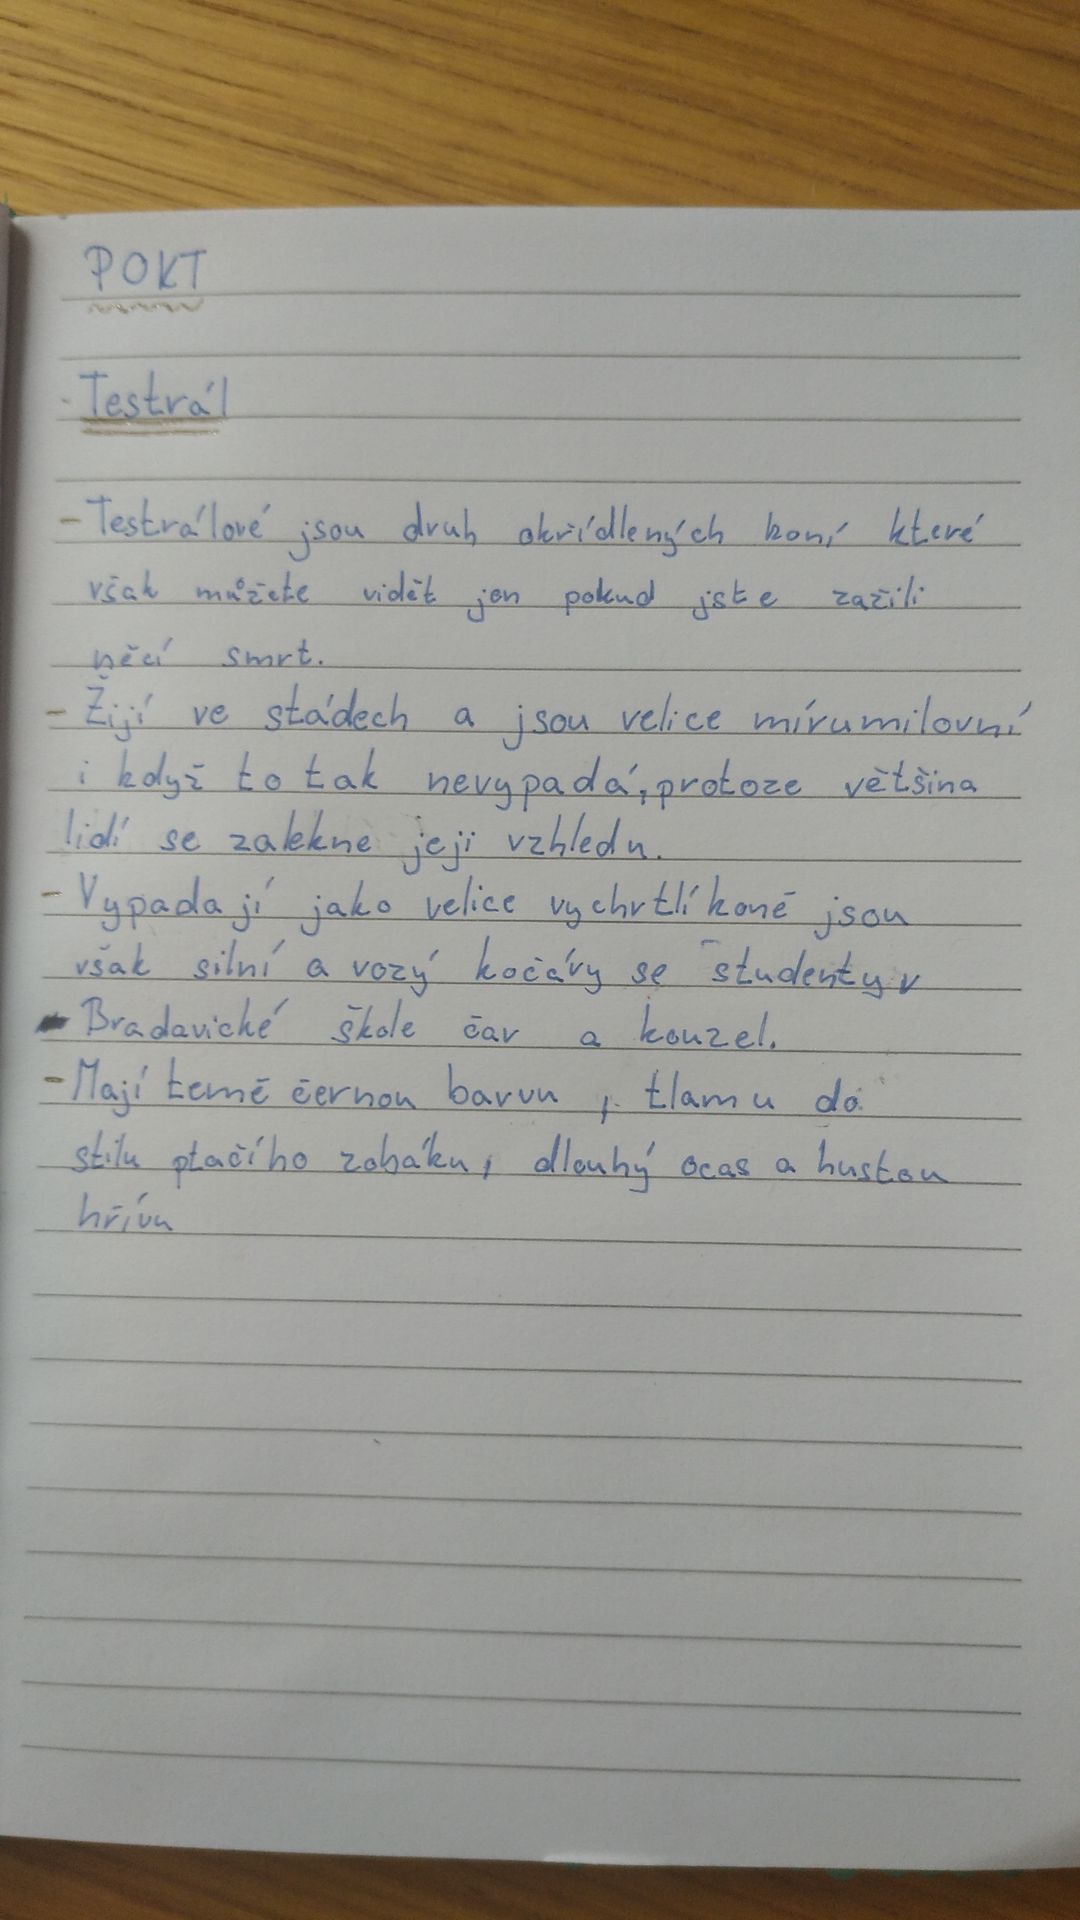 POKT
Testrál
- Testrálové jsou druh okřídlených koní které
však můžete vidět jen pokud jste zažili
něčí smrt.
- Žijí ve stádech a jsou velice mírumilovní
i když to tak nevypadá, protoze většina
lidí se zalekne jeji vzhledu.
- Vypadají jako velice vychrtlí koně jsou
však silní a vozý kočáry se studenty v
Bradavické škole čar a kouzel.
- Mají temě černou barvu, tlamu do
stilu ptačího zobáku, dlouhý ocas a hustou
hřívu